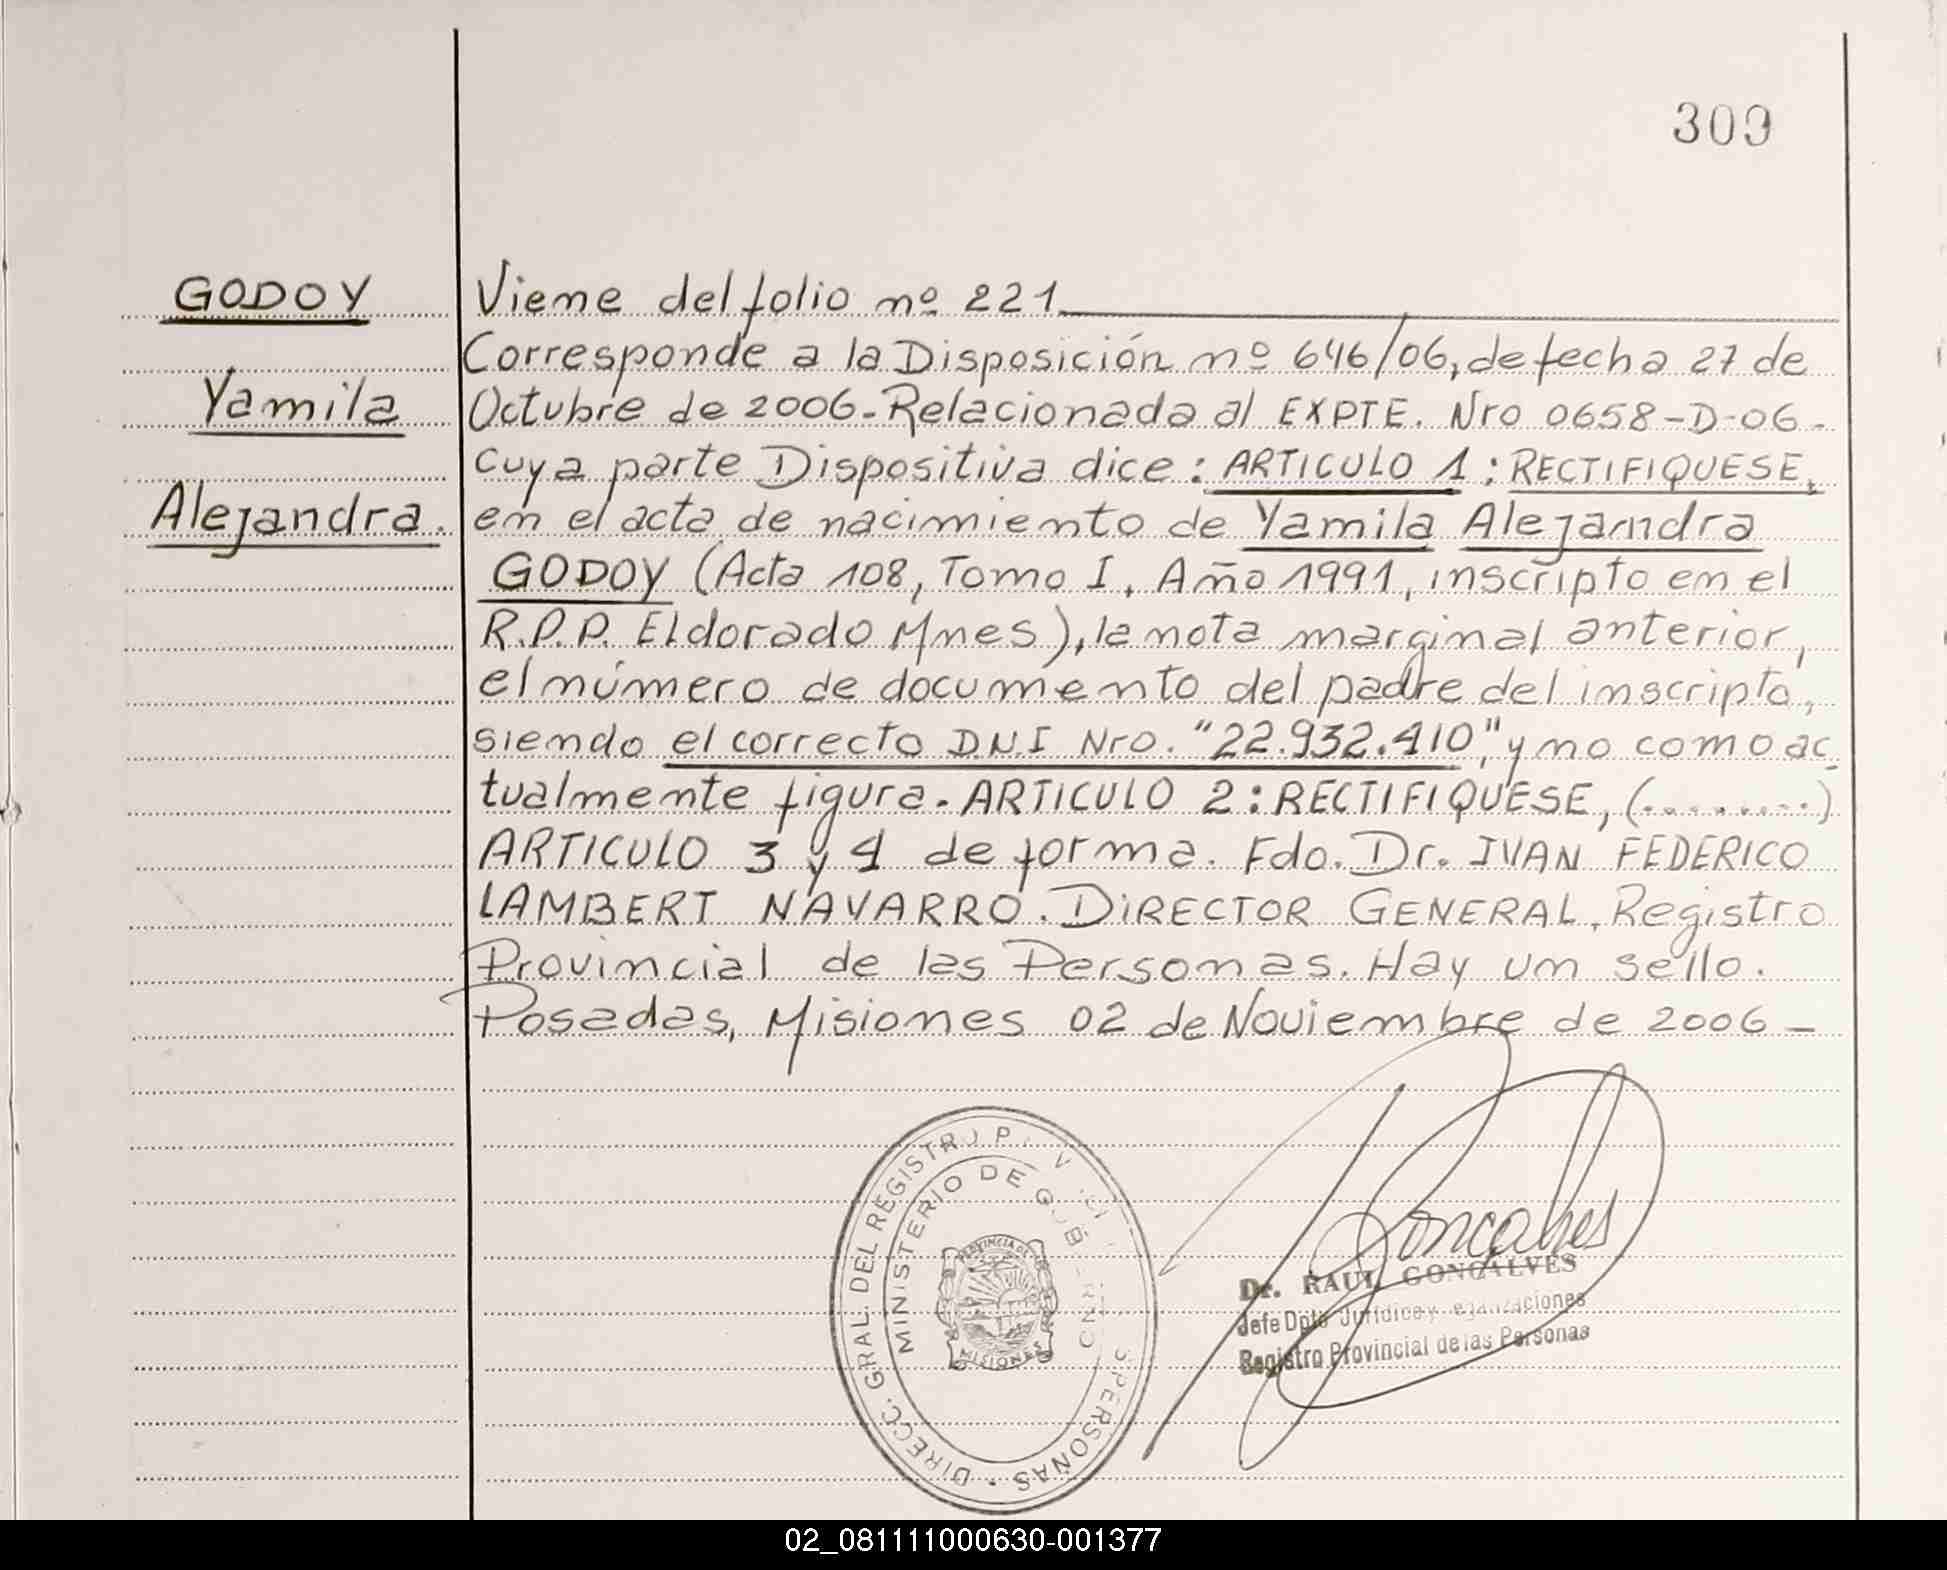 309
GODOY
Yamila
Alejandra.
Viene del folio nº 221
Corresponde a la Disposición nº 646/06, de fecha 27 de
Octubre de 2006.- Relacionada al EXPTE. Nro 0658-D-06.-
cuya parte Dispositiva dice: ARTICULO 1: RECTIFIQUESE,
en el acta de nacimiento de Yamila Alejandra
GODOY (Acta 108, Tomo I, Año 1991, inscripto en el
R.P.P. Eldorado Mnes), la nota marginal anterior,
el número de documento del padre del inscripto,
siendo el correcto D.N.I Nro. "22.932.410", y no como ac
tualmente figura. ARTICULO 2: RECTIFIQUESE, (.........)
ARTICULO 3 y 4 de forma. Fdo. Dr. IVAN FEDERICO
LAMBERT NAVARRO. DIRECTOR GENERAL, Registro
Provincial de las Personas. Hay un sello.
Posadas, Misiones 02 de Noviembre de 2006 -
DIRECC. GRAL. DEL REGISTRO PERSONAS
MINISTERIO DE
PROVINCIA DE
MISIONES
Goncalves
Dr. RAUL GONÇALVES
Jefe Dpto Jurídico y
Registro Provincial de las Personas
02_081111000630-001377